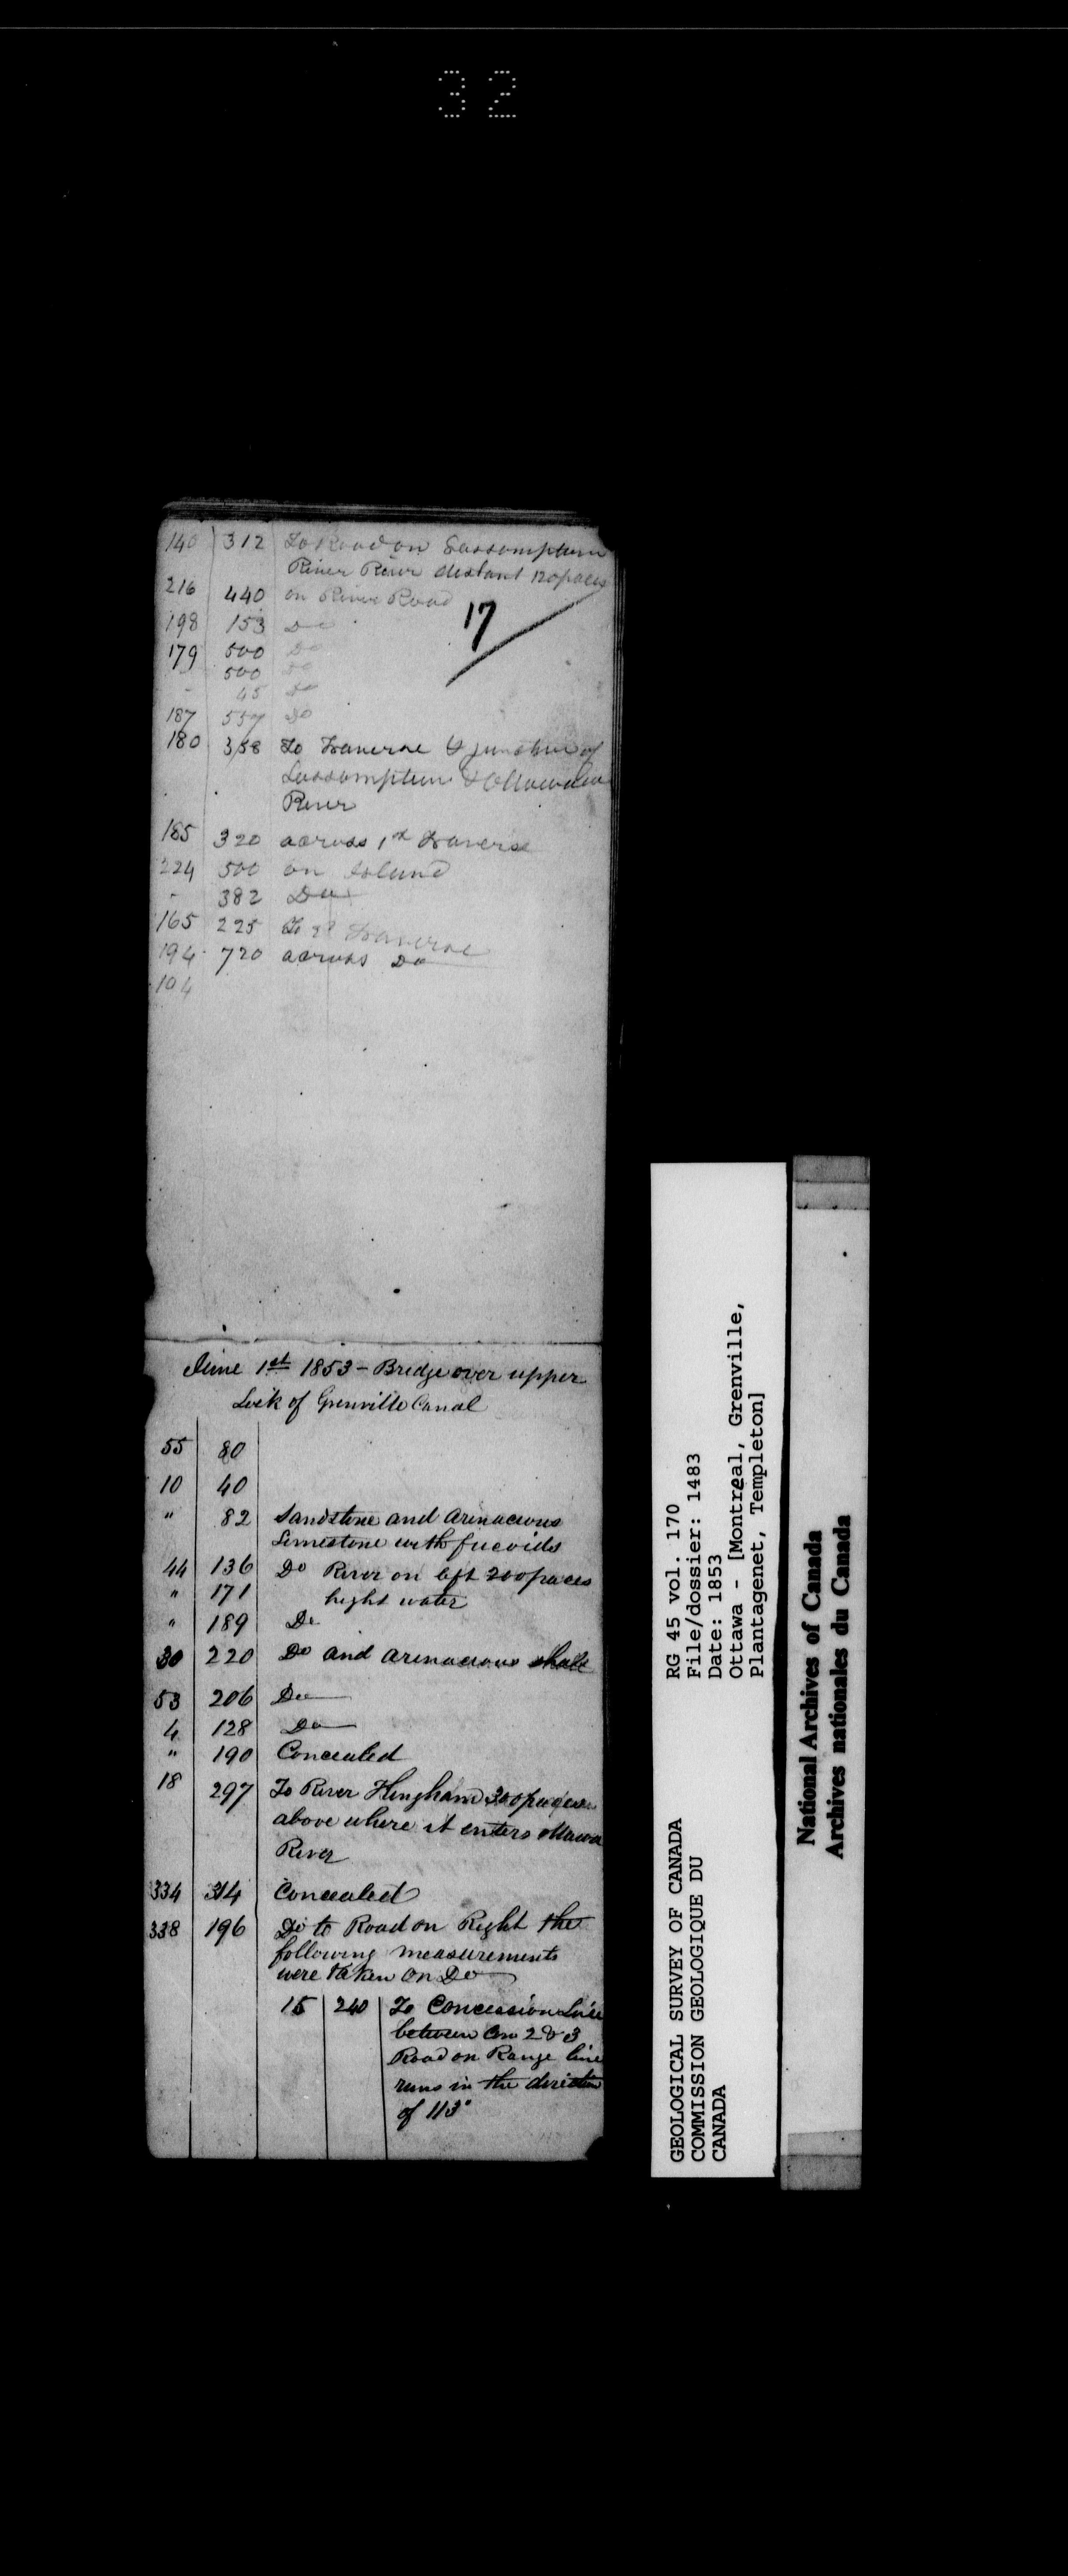 32
140 312 To Road on Lassomption
River River distant 120 paces
216 440 on River Road
17
198 153 Do
179 500 Do
500 Do
- 45 Do
187 557 Do
180 358 To Traverse & junction of
Lassomption & Ottawa
River
185 320 across 1st Traverse
224 500 on Island
- 382 Do
165 225 To 2d Traverse
194 720 across Do
194
June 1st 1853 - Bridge over upper
Lock of Grenville Canal
55 80
10 40
" 82 Sandstone and Arinacious
Limestone with fucoids
44 136 Do River on left 200 paces
" 171 hight water
" 189 Do
30 220 Do and Arinacious shale
53 206 Do
4 128 Do
" 190 Concealed
18 297 To River Hingham 300 paces
above where it enters Ottawa
River
334 314 Concealed
338 196 Do to Road on Right the
following measurements
were taken on Do
15 240 To Concession Line
between Con 2 & 3
Road on Range line
runs in the direction
of 113°
GEOLOGICAL SURVEY OF CANADA
COMMISSION GEOLOGIQUE DU
CANADA
RG 45 vol. 170
File/dossier: 1483
Date: 1853
Ottawa - [Montreal, Grenville,
Plantagenet, Templeton]
National Archives of Canada
Archives nationales du Canada